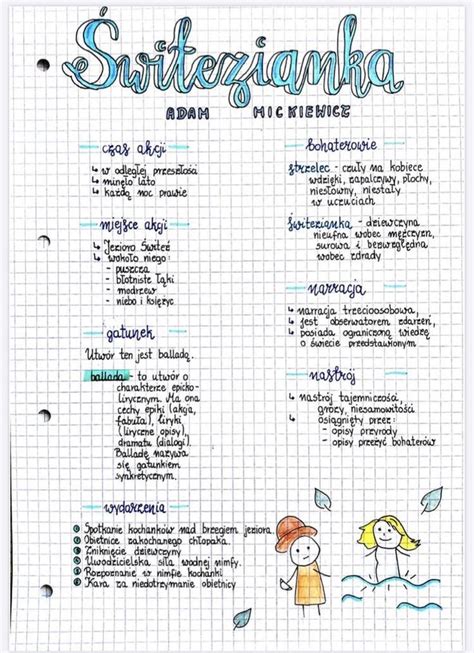 Świtezianka
ADAM MICKIEWICZ
czas akcji
↳ w odległej przeszłości
↳ minęło lato
↳ każdą noc prawie
miejsce akcji
↳ Jezioro Świteź
↳ wokoło niego:
- puszcza
- błotniste łąki
- modrzew
- niebo i księżyc
gatunek
Utwór ten jest balladą.
ballada - to utwór o
charakterze epicko-
lirycznym. Ma ona
cechy epiki (akcja,
fabuła), liryki
(liryczne opisy),
dramatu (dialogi).
Balladę nazywa
się gatunkiem
synkretycznym.
bohaterowie
strzelec - czuły na kobiece
wdzięki, zapalczywy, płochy,
niesłowny, niestały
w uczuciach
świtezianka - dziewczyna
nieufna wobec mężczyzn,
surowa i bezwzględna
wobec zdrady
narracja
↳ narracja trzecioosobowa,
↳ jest obserwatorem zdarzeń,
↳ posiada ograniczoną wiedzę
o świecie przedstawionym
nastrój
↳ nastrój tajemniczości,
grozy, niesamowitości
↳ osiągnięty przez:
- opisy przyrody
- opisy przeżyć bohaterów
wydarzenia
1 Spotkanie kochanków nad brzegiem jeziora.
2 Obietnice zakochanego chłopaka
3 Zniknięcie dziewczyny
4 Uwodzicielska siła wodnej nimfy.
5 Rozpoznanie w nimfie kochanki
6 Kara za niedotrzymanie obietnicy